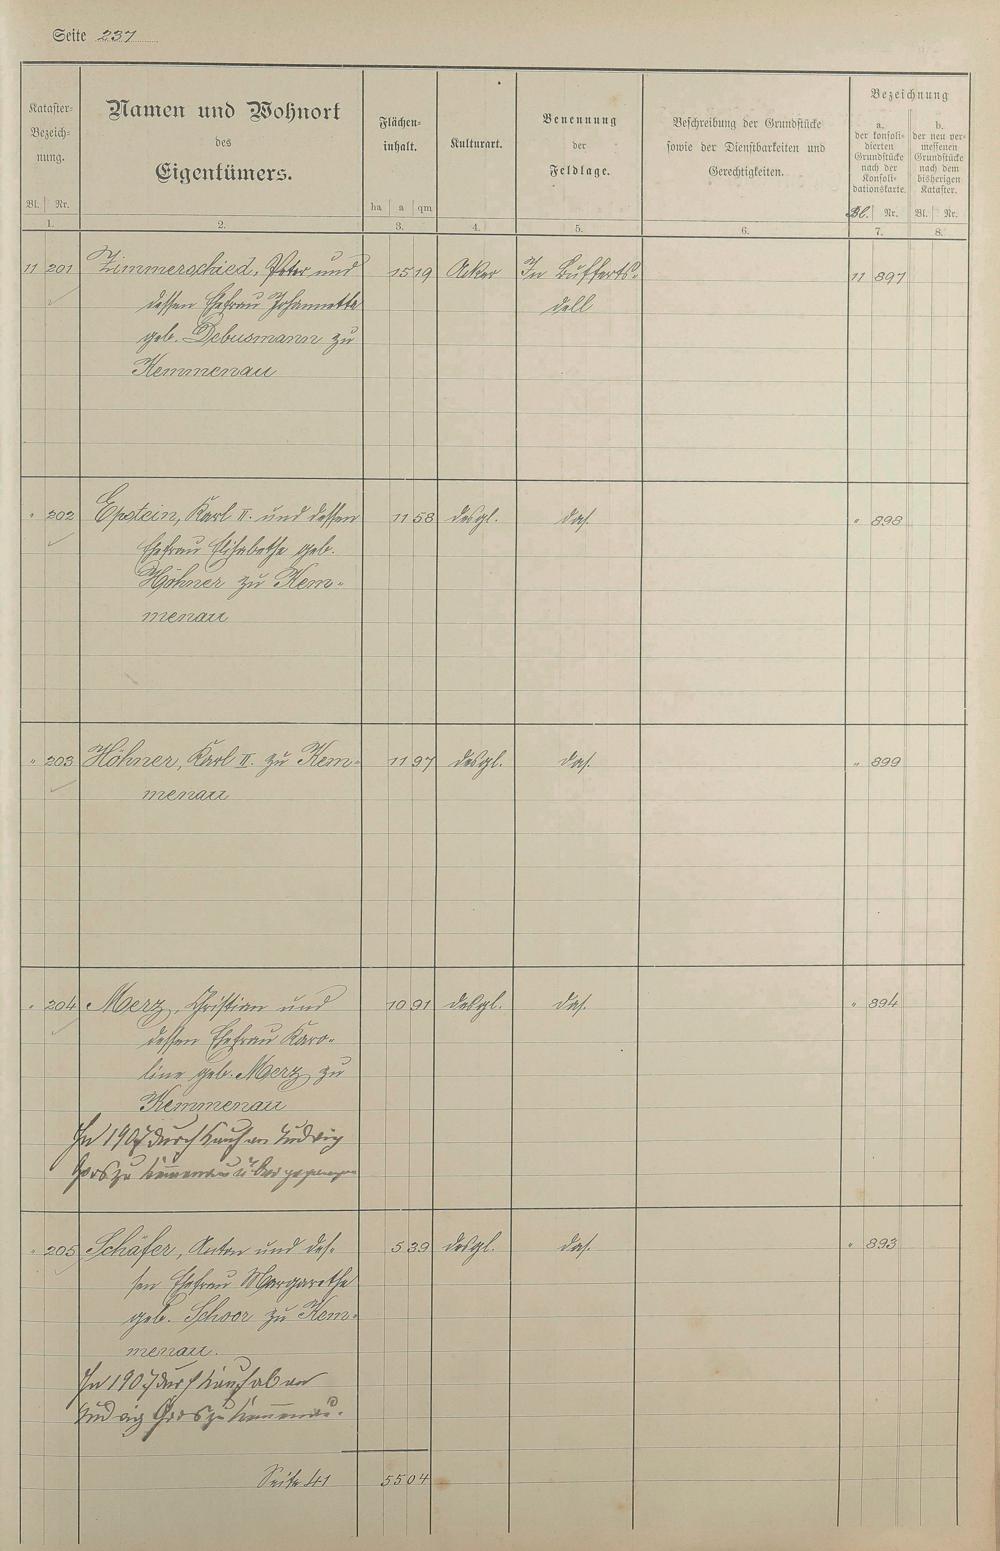 Seite 237
Kataster-
Bezeich-
nung.
Bl. Nr.
1.
Namen und Wohnort
des
Eigentümers.
2.
Flächen-
inhalt.
ha a qm
3.
Kulturart.
4.
Benennung
der
Feldlage.
5.
Beschreibung der Grundstücke
sowie der Dienstbarkeiten und
Gerechtigkeiten.
6.
Bezeichnung
a.
der konsoli-
dierten
Grundstücke
nach der
Konsoli-
dationskarte.
Bl. Nr.
7.
b.
der neu ver-
messenen
Grundstücke
nach dem
bisherigen
Kataster.
Bl. Nr.
8.
11 201 Zimmerschied, Peter und 15 19 Acker In Bufferts- 11 897
dessen Ehefrau Johannetta dell
geb. Debusmann zu
Kemmenau
" 202 Epstein, Karl II. und dessen 11 58 desgl. das. " 898
Ehefrau Elisabethe geb.
Höhner zu Kem-
menau
" 203 Höhner, Karl II. zu Kem- 11 97 desgl. das. " 899
menau
" 204 Merz, Christian und 10 91 desgl. das. " 894
dessen Ehefrau Karo-
line geb. Merz zu
Kemmenau
In 1907 durch Kauf an Ludwig
zu Kemmenau übergegangen
" 205 Schäfer, Anton und des- 5 39 desgl. das. " 893
sen Ehefrau Margarethe
geb. Schoor zu Kem-
menau.
In 1907 durch Kauf ab an
Ludwig zu Kemmenau.
Seite 41 55 04